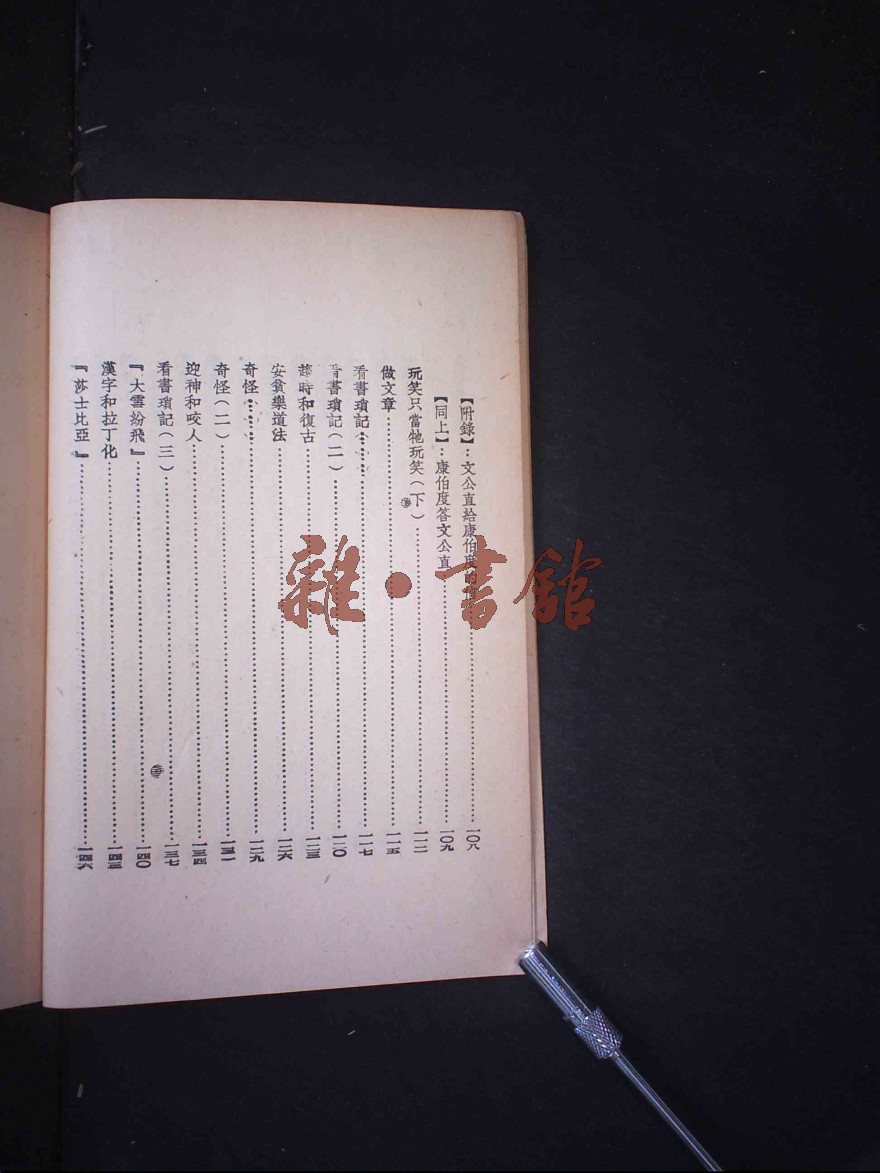 【附錄】：文公直給康伯度的 一〇八
【同上】：康伯度答文公直 一〇九
玩笑只當牠玩笑（下） 一一二
做文章 一一五
看書瑣記 一一七
看書瑣記（二） 一二〇
趨時和復古 一二三
安貧樂道法 一二六
奇怪 一二九
奇怪（二） 一三一
迎神和咬人 一三四
看書瑣記（三） 一三七
『大雪紛飛』 一四〇
漢字和拉丁化 一四三
『莎士比亞』 一四六
雜·書館